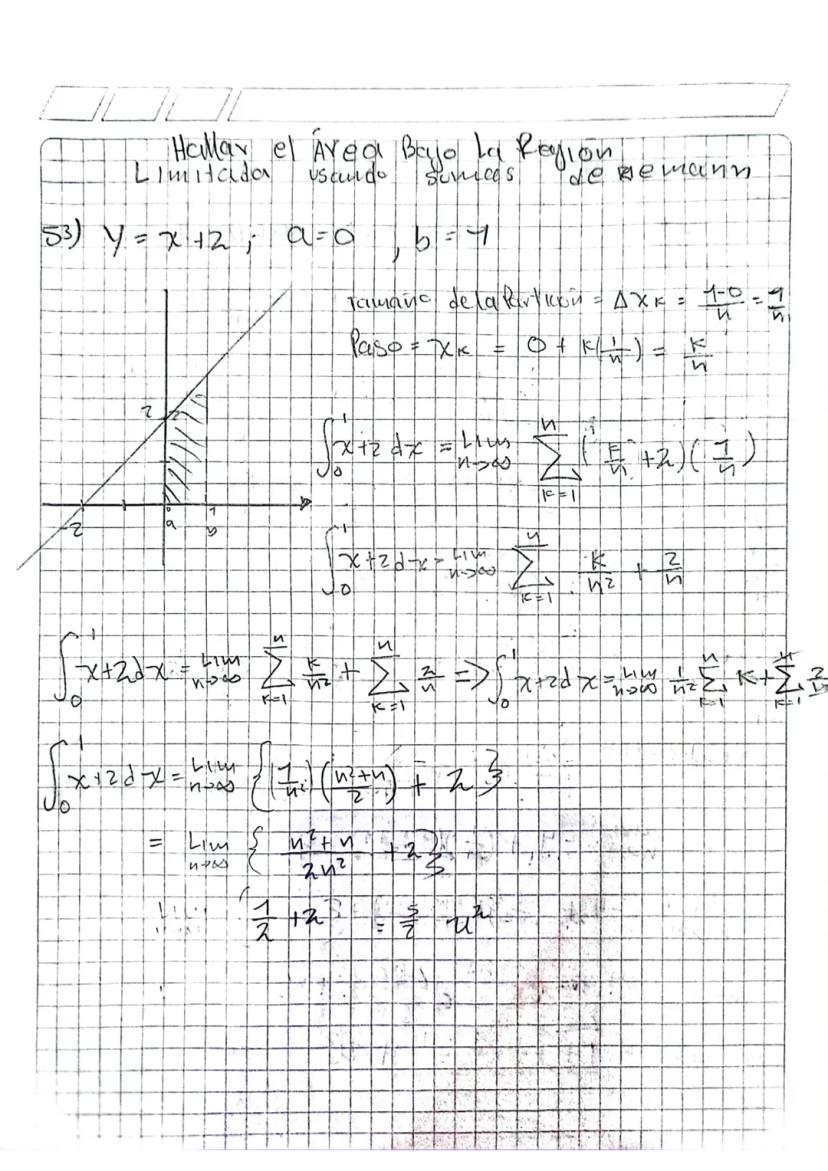 Hallar el Área Bajo La Región
Limitada usando sumas de Riemann
53) y = x + 2 ; a = 0 , b = 1
Tamaño de la Partición = Δxₖ = (1-0)/n = 1/n
Paso = xₖ = 0 + k(1/n) = k/n
2 2
-2 a 1 b
∫₀¹ x+2 dx = Lim n→∞ Σₖ₌₁ⁿ (k/n + 2)(1/n)
∫₀¹ x+2 dx = Lim n→∞ Σₖ₌₁ⁿ k/n² + 2/n
∫₀¹ x+2 dx = Lim n→∞ Σₖ₌₁ⁿ k/n² + Σₖ₌₁ⁿ 2/n => ∫₀¹ x+2 dx = Lim n→∞ 1/n² Σₖ₌₁ⁿ k + Σₖ₌₁ⁿ 2/n
∫₀¹ x+2 dx = Lim n→∞ {(1/n²)((n²+n)/2) + 2}
= Lim n→∞ { (n²+n)/2n² + 2}
1/2 + 2 = 5/2 u²